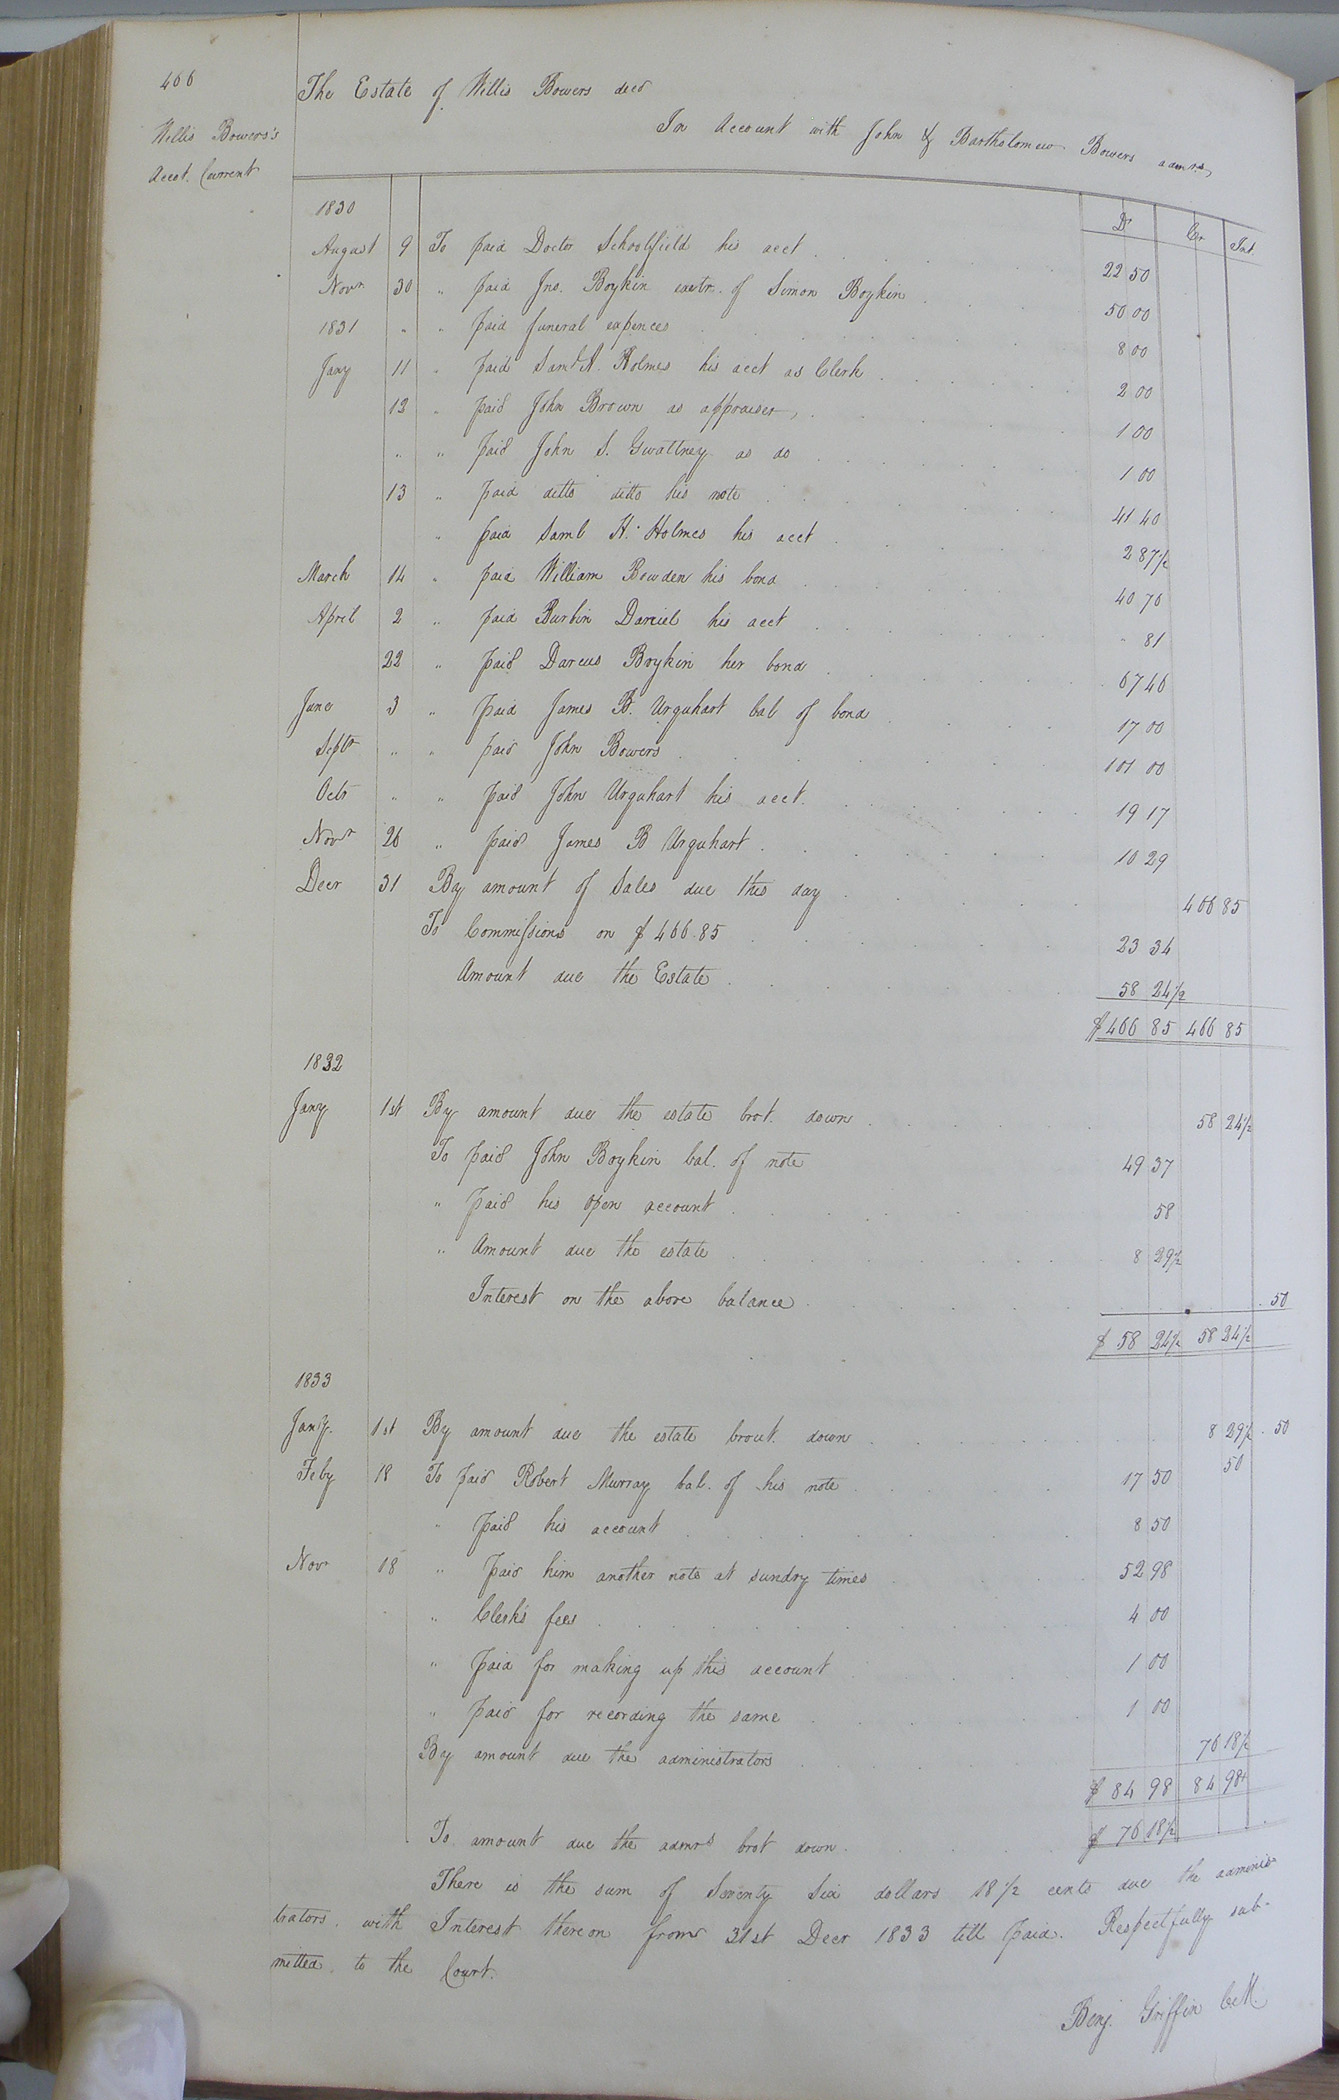 466
The Estate of Willis Bowers decd
In Account with John & Bartholomew Bowers admrs
Willis Bowers's
Accot. Current
Dr Cr Int
1830
August 9 To paid Doctor Schoolfield his acct 22 50
Novr 30 " paid Jno. Boykin exetr. of Simon Boykin 50 00
1831 " " paid funeral expences 8 00
Jany 11 " paid Saml H. Holmes his acct as Clerk 2 00
12 " paid John Brown as appraiser, 1 00
" " paid John S. Gwaltney as do 1 00
13 " paid ditto ditto his note 41 40
" paid Saml H. Holmes his acct 2 87½
March 14 " paid William Bowden his bond 40 70
April 2 " paid Durbin Daniel his acct " 81
22 " paid Darcus Boykin her bond 67 46
June 3 " paid James B. Urquhart bal of bond 17 00
Septr " " paid John Bowers 101 00
Octr " " paid John Urquhart his acct. 19 17
Novr 26 " paid James B Urquhart 10 29
Decr 31 By amount of Sales due this day 466 85
To Commissions on $466.85 23 34
Amount due the Estate 58 24½
$466 85 466 85
1832
Jany 1st By amount due the estate brot. down 58 24½
To paid John Boykin bal. of note 49 37
" paid his open account 58
" Amount due the estate 8 29½
Interest on the above balance .50
$ 58 24½ 58 24½
1833
Jany. 1st By amount due the estate brout. down 8 29½ .50
50
Feby 18 To paid Robert Murray bal. of his note 17 50
" paid his account 8 50
Novr 18 " paid him another note at sundry times 52 98
" Clerk's fees 4 00
" paid for making up this account 1 00
" paid for recording the same 1 00
By amount due the administrators 76 18½
$ 84 98 84 98
To amount due the admrs brot down $ 76 18½
There is the sum of Seventy Six dollars 18½ cents due the adminis-
trators. with Interest thereon from 31st Decr 1833 till paid. Respectfully sub-
mitted to the Court.
Benj. Griffin